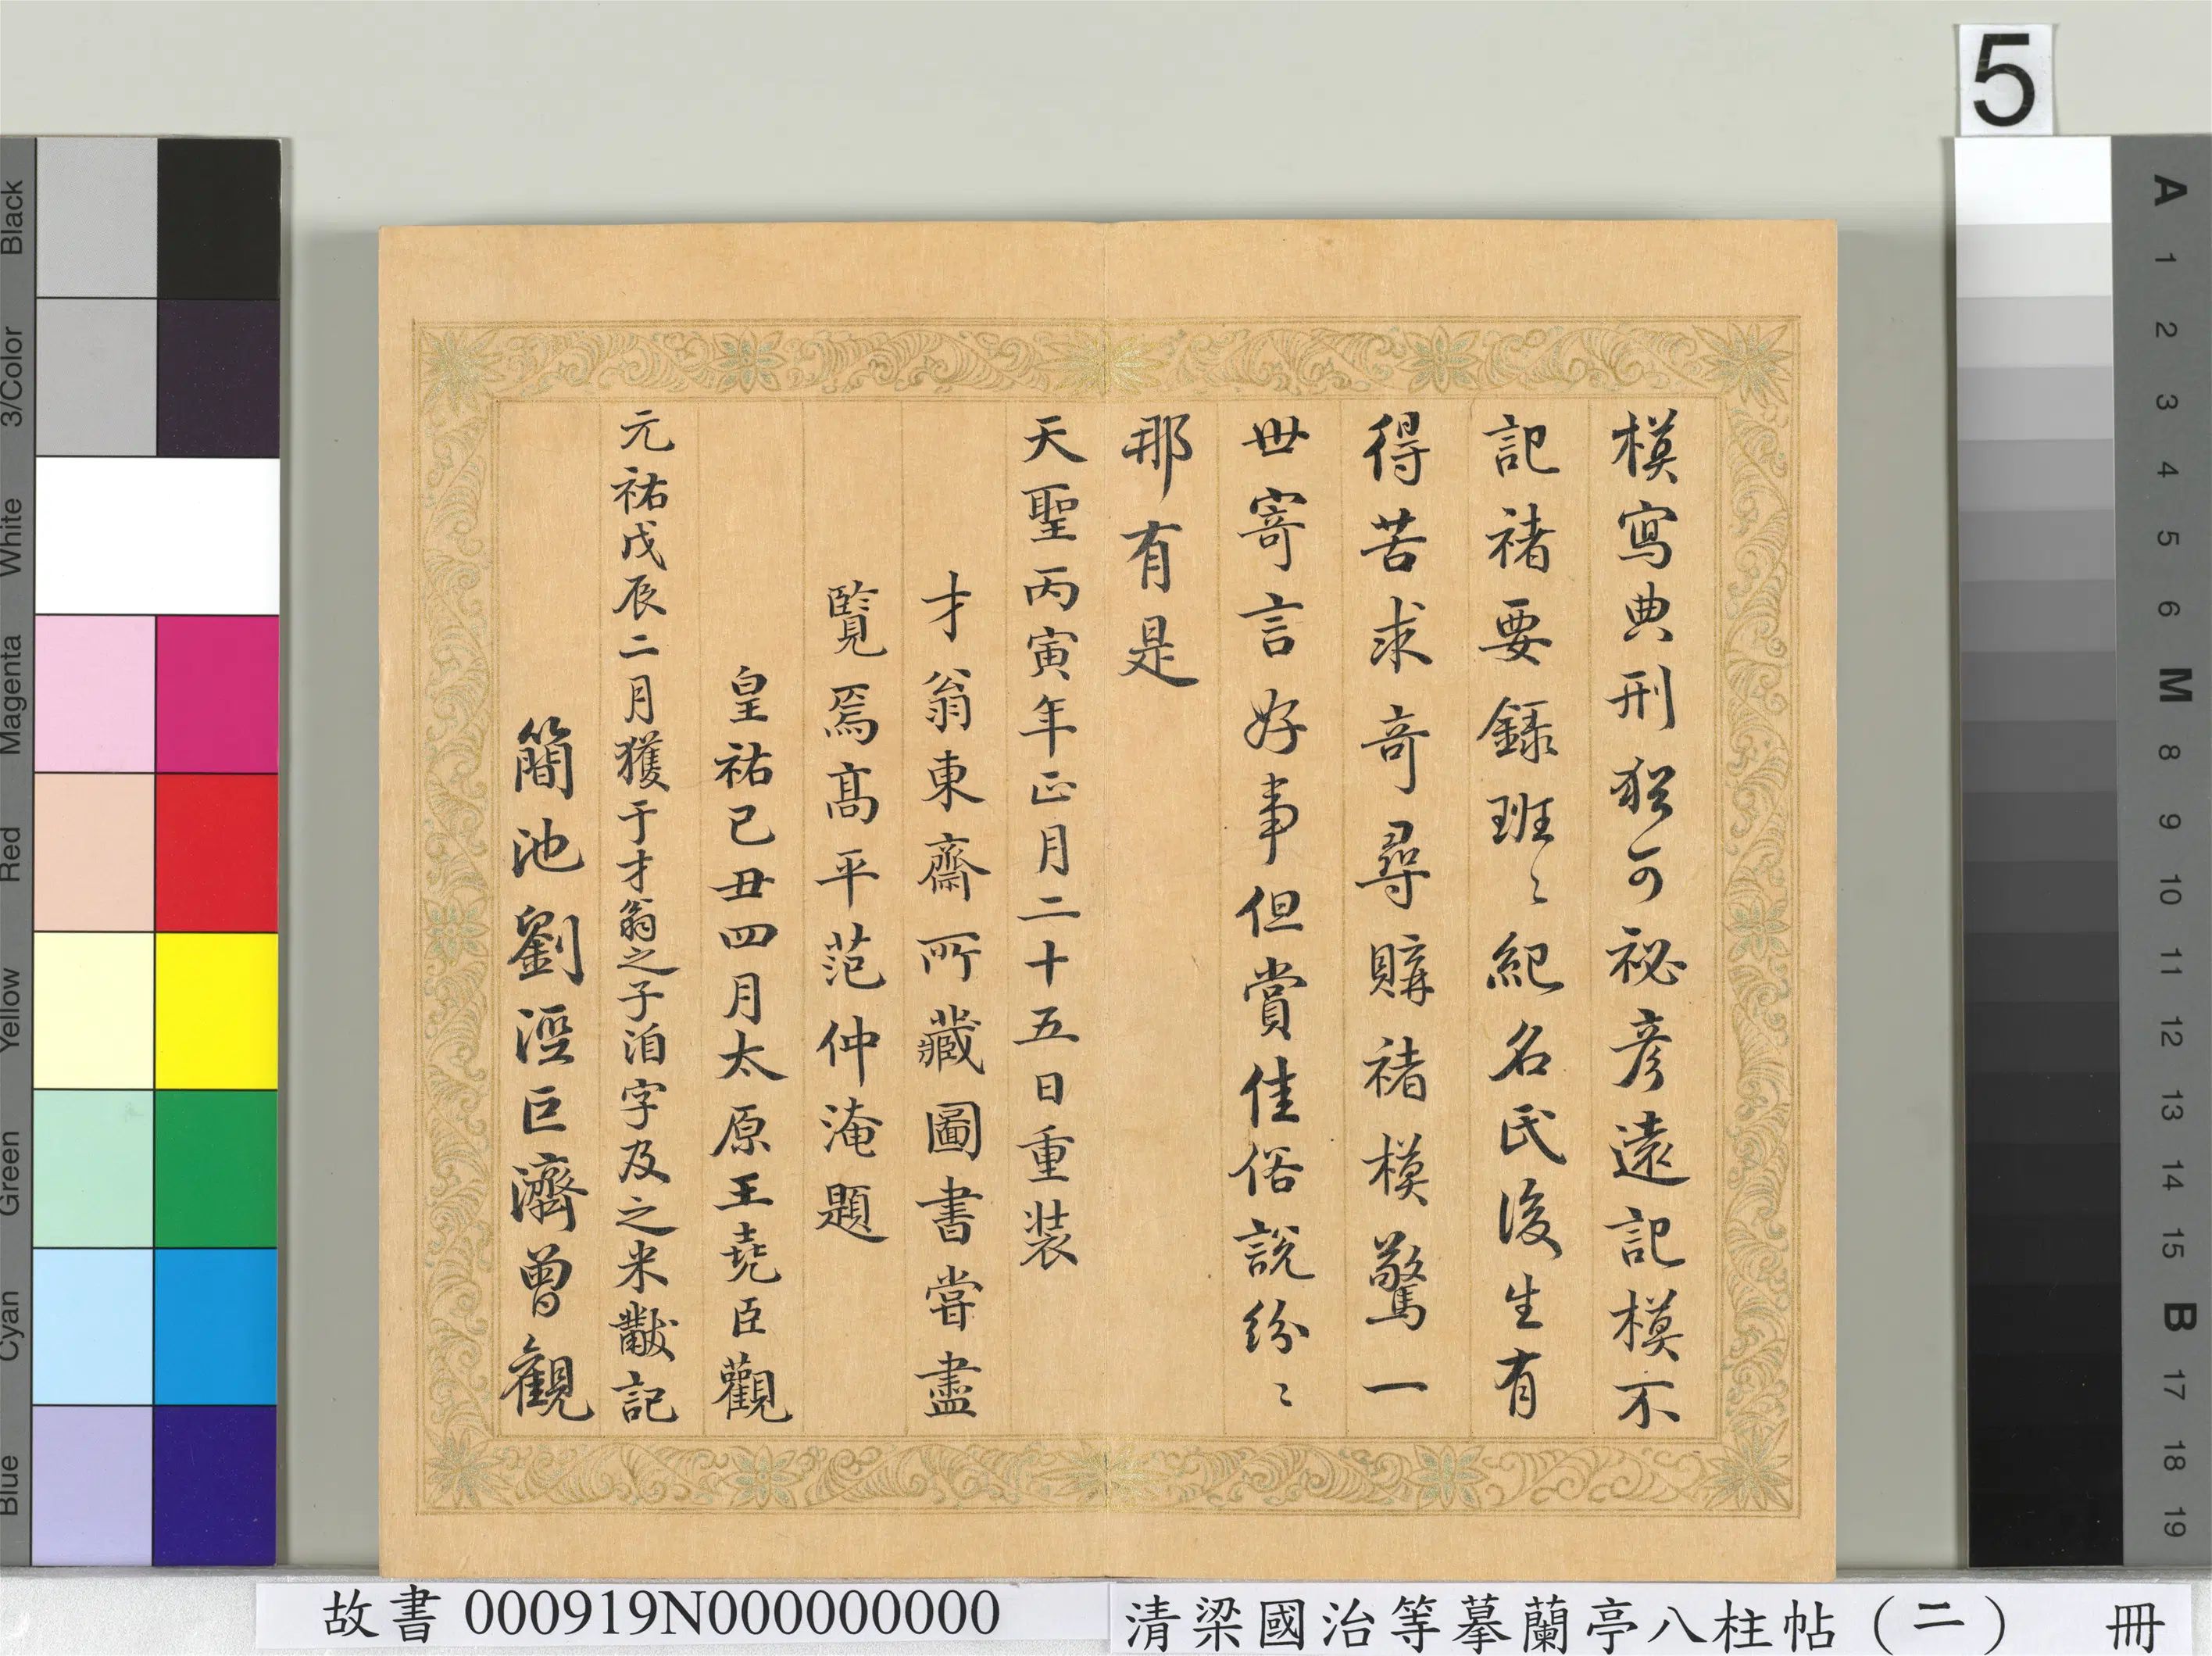 模寫典刑猶可祕彥遠記模不
記禇要錄班〻紀名氏後生有
得苦求奇尋購禇模驚一
世寄言好事但賞佳俗說紛〻
那有是
天聖丙寅年正月二十五日重装
才翁東齋所藏圖書嘗盡
覽焉高平范仲淹題
皇祐己丑四月太原王堯臣觀
元祐戊辰二月獲于才翁之子洎字及之米黻記
簡池劉涇巨濟曾觀
5
故書 000919N000000000
清梁國治等摹蘭亭八柱帖（二） 冊
Black
3/Color
White
Magenta
Red
Yellow
Green
Cyan
Blue
A
1
2
3
4
5
6
M
8
9
10
11
12
13
14
15
B
17
18
19